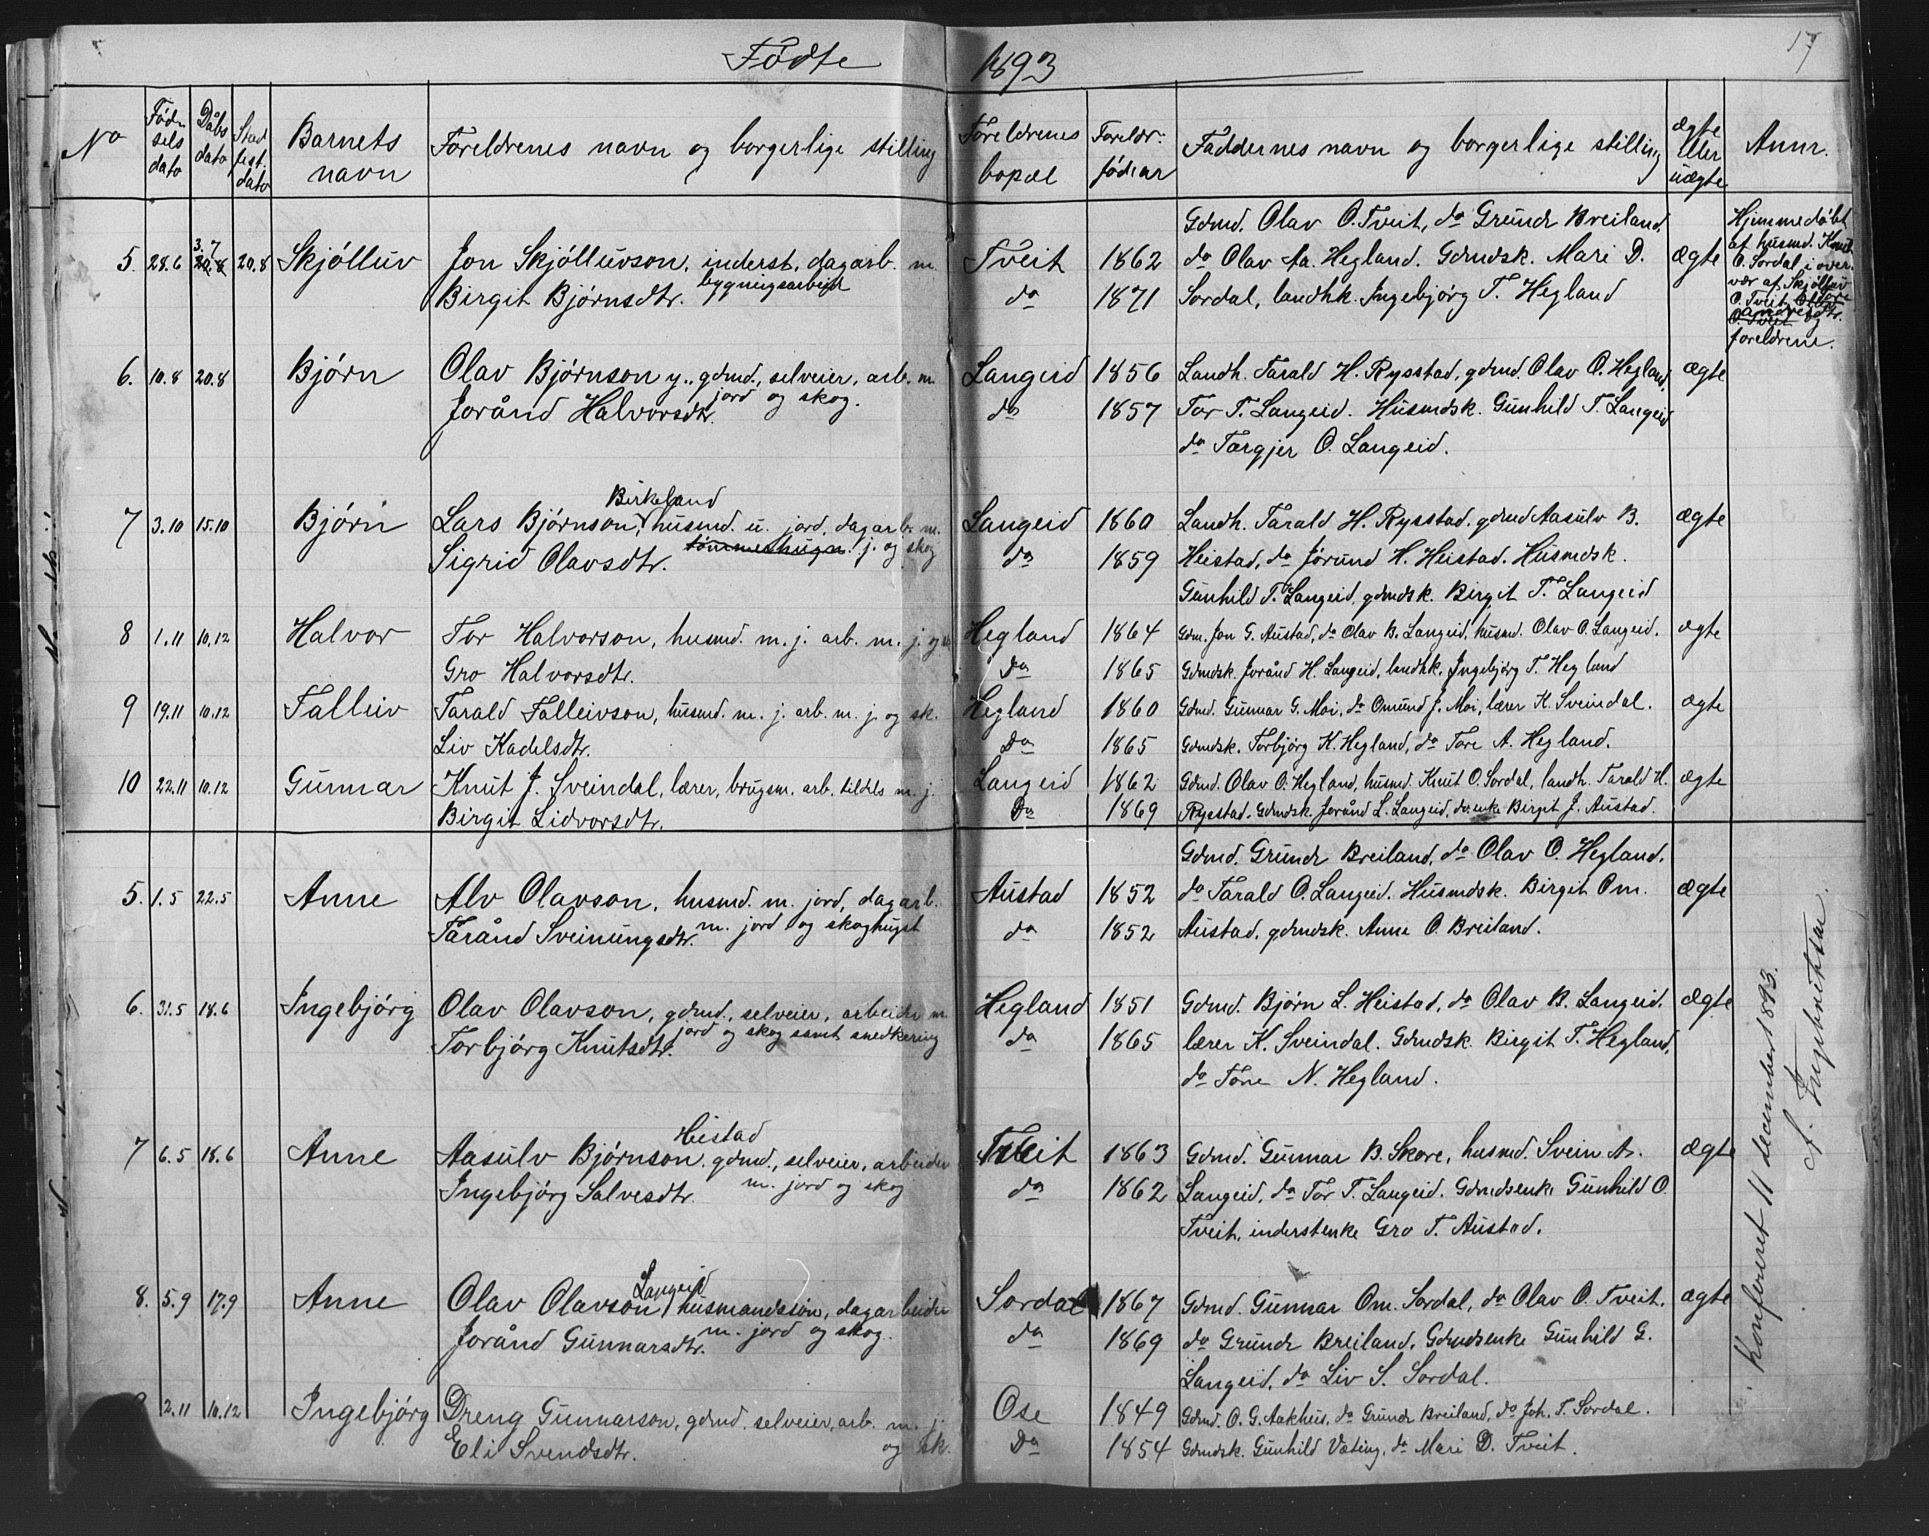 17
Fødte 1893
No
Fødselsdato
Dåbsdato
Stadfest. dato
Barnets navn
Foreldrenes navn og borgerlige stilling
Foreldrenes bopæl
Foreldr. fødear
Faddernes navn og borgerlige stilling
ægte eller uægte
Anm.
5. 28.6 3.7 20.8 20.8 Skjølluv Jon Skjølluvson, inderst, dagarb. m. Tveit 1862 Gdmd. Olav O. Tveit, do Greundr Breiland, ægte
bygningsarbeid
Birgit Bjørnsdtr. do 1871 do Olav Aa. Hegland. Gdmdsk. Mari D.
Sordal, landhk. Ingebjørg T. Hegland
Hjemmedøbt
af husmd. Knut
O. Sordal i over-
vær af Skjølluv
O. Tveit, Tore
Andresdtr.
O. Tveit og
foreldrene.
6. 10.8 20.8 Bjørn Olav Bjørnson y., gdmd., selveier, arb. m. Langeid 1856 Landh. Tarald H. Rysstad, gdmd. Olav O. Hegland, ægte
jord og skog.
Jorånd Halvorsdtr. do 1857 Tor T. Langeid. Husmdsk. Gunhild T. Langeid
do Targjer O. Langeid.
Birkeland
7 3.10 15.10 Bjørn Lars Bjørnson, husmd. u. jord, dagarb. m. Langeid 1860 Landh. Tarald H. Rysstad, gdmd Aasulv B. ægte
tømmerhugn. j. og skog
Sigrid Olavsdtr. do 1859 Heistad, do Jørund H. Heistad. Husmdsk.
Gunhild T. Langeid, gdmdsk. Birgit T. Langeid
8 1.11 10.12 Halvor Tor Halvorson, husmd. m. j. arb. m. j. og Hegland 1864 Gdm. Jon G. Austad, do Olav B. Langeid, husmd. Olav O. Langeid. ægte
Gro Halvorsdtr. Do 1865 Gdmdsk. Jorånd H. Langeid, landhk. Ingebjørg T. Hegland
9 19.11 10.12 Falleiv Tarald Falleivson, husmd. m. j. arb. m. j. og sk. Hegland 1860 Gdmd. Gunnar G. Moi, do Omund J. Moi, lærer K. Sveindal. ægte
Liv Kadelsdtr. Do 1865 Gdmdsk. Torbjørg K. Hegland, do Tore A. Hegland.
10 22.11 10.12 Gunnar Knut J. Sveindal, lærer, brugsm. arb. tildels m. j. Langeid 1862 Gdmd. Olav O. Hegland, husmd. Knut O. Sordal, landh. Tarald H. ægte
Birgit Lidvorsdtr. Do 1869 Rysstad. Gdmdsk. Jorånd L. Langeid, do enke Birgit J. Austad.
Gdmd. Grundr Breiland, do Olav O. Hegland.
5. 1.5 22.5 Anne Alv Olavson, husmd. m. jord, dagarb. Austad 1852 do Tarald O. Langeid. Husmdsk. Birgit Om. ægte
m. jord og skoghugst
Tarånd Sveinungsdtr. do 1852 Austad, gdmdsk. Anne O. Breiland.
6. 31.5 18.6 Ingebjørg Olav Olavson, gdmd., selveier, arbeider m. Hegland 1851 Gdmd. Bjørn L. Heistad, do Olav B. Langeid. ægte
jord og skog samt snedkering
Torbjørg Knutsdtr. do 1865 lærer K. Sveindal. Gdmdsk. Birgit T. Hegland,
do Tone N. Hegland.
Heistad
7 6.5 18.6 Anne Aasulv Bjørnson gdmd., selveier, arbeider Tveit 1863 Gdmd. Gunnar B. Skore, husmd. Svein As. ægte
m. jord og skog
Ingebjørg Salvesdtr. do 1862 Langeid, do Tor T. Langeid. Gdmdsenke Gunhild O.
Tveit, inderstenke Gro T. Austad.
Langeid
8. 5.9 17.9 Anne Olav Olavson, husmandssøn, dagarbeider Sordal 1867 Gdmd. Gunnar Om. Sordal, do Olav O. Tveit. ægte
m. jord og skog.
Jorånd Gunnarsdtr. do 1869 do Grundr Breiland. Gdmdsenke Gunhild G.
Langeid, do Liv S. Sordal.
2.11 10.12 Ingebjørg Dreng Gunnarson, gdmd. selveier, arb. m. j. Ose 1849 Gdmd. O. G. Aakhus, do Grundr Breiland, do Joh. T. Sordal.
og sk.
Eli Svendsdtr. Do 1854 Gdmdsk. Gunhild Vating, do Mari D. Tveit.
Konfereret 11 december 1893.
A. Ingebrektsen.